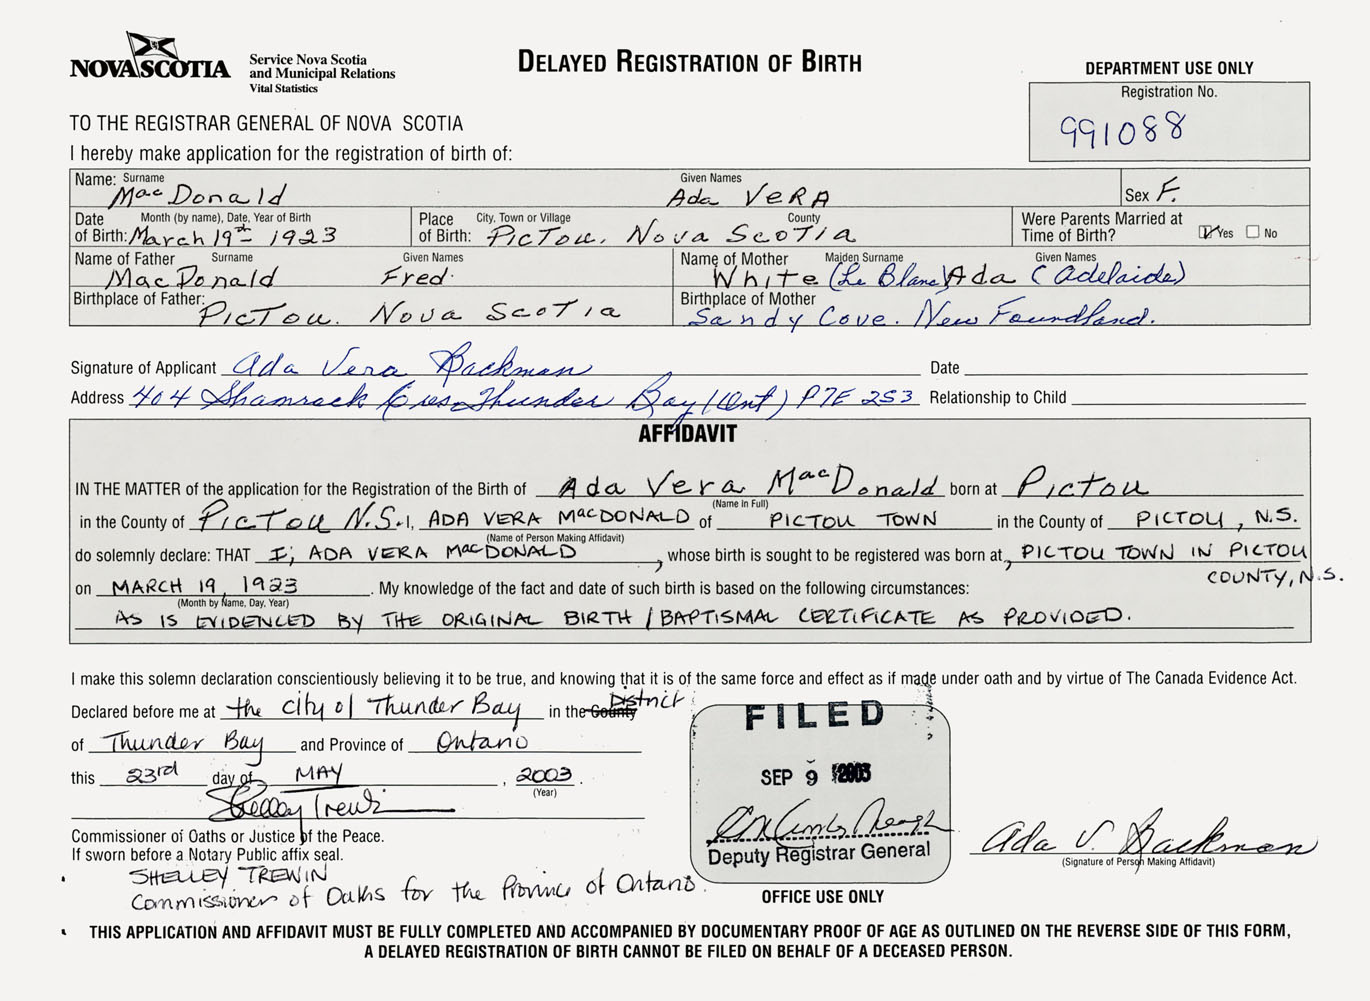 NOVA SCOTIA
Service Nova Scotia
and Municipal Relations
Vital Statistics
DELAYED REGISTRATION OF BIRTH
DEPARTMENT USE ONLY
Registration No.
991088
TO THE REGISTRAR GENERAL OF NOVA SCOTIA
I hereby make application for the registration of birth of:
Name: Surname Given Names
MacDonald Ada VERA Sex F.
Date Month (by name), Date, Year of Birth Place City, Town or Village County Were Parents Married at
of Birth: March 19th 1923 of Birth: PICTOU, NOVA SCOTIA Time of Birth? Yes No
Name of Father Surname Given Names Name of Mother Maiden Surname Given Names
MacDonald Fred. White (Le Blanc) Ada (Adelaide)
Birthplace of Father: Birthplace of Mother
PICTOU. NOVA SCOTIA Sandy Cove. New Foundland.
Signature of Applicant Ada Vera Backman Date
Address 404 Shamrock Cres Thunder Bay (Ont) P7E 2S3 Relationship to Child
AFFIDAVIT
IN THE MATTER of the application for the Registration of the Birth of Ada Vera MacDonald born at Pictou
(Name In Full)
in the County of PICTOU N.S. I, ADA VERA MacDONALD of PICTOU TOWN in the County of PICTOU, N.S.
(Name of Person Making Affidavit)
do solemnly declare: THAT I, ADA VERA MacDONALD, whose birth is sought to be registered was born at, PICTOU TOWN IN PICTOU
COUNTY, N.S.
on MARCH 19, 1923. My knowledge of the fact and date of such birth is based on the following circumstances:
(Month by Name, Day, Year)
AS IS EVIDENCED BY THE ORIGINAL BIRTH / BAPTISMAL CERTIFICATE AS PROVIDED.
I make this solemn declaration conscientiously believing it to be true, and knowing that it is of the same force and effect as if made under oath and by virtue of The Canada Evidence Act.
Declared before me at the city of Thunder Bay in the County District
of Thunder Bay and Province of Ontario
this 23rd day of MAY, 2003.
(Year)
Shelley Trewin
Commissioner of Oaths or Justice of the Peace.
If sworn before a Notary Public affix seal.
SHELLEY TREWIN
Commissioner of Oaths for the Province of Ontario.
FILED
SEP 9 2003
Deputy Registrar General
OFFICE USE ONLY
Ada V. Backman
(Signature of Person Making Affidavit)
THIS APPLICATION AND AFFIDAVIT MUST BE FULLY COMPLETED AND ACCOMPANIED BY DOCUMENTARY PROOF OF AGE AS OUTLINED ON THE REVERSE SIDE OF THIS FORM,
A DELAYED REGISTRATION OF BIRTH CANNOT BE FILED ON BEHALF OF A DECEASED PERSON.